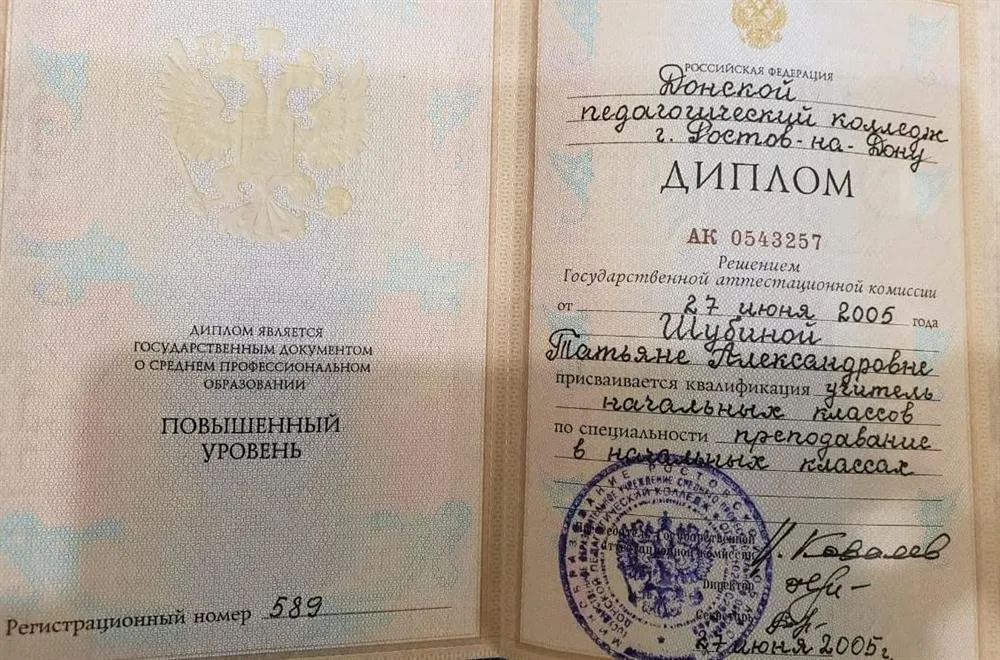 ДИПЛОМ ЯВЛЯЕТСЯ
ГОСУДАРСТВЕННЫМ ДОКУМЕНТОМ
О СРЕДНЕМ ПРОФЕССИОНАЛЬНОМ
ОБРАЗОВАНИИ
ПОВЫШЕННЫЙ
УРОВЕНЬ
Регистрационный номер 589
РОССИЙСКАЯ ФЕДЕРАЦИЯ
Донской
педагогический колледж
г. Ростов-на-Дону
ДИПЛОМ
АК 0543257
Решением
Государственной аттестационной комиссии
от 27 июня 2005 года
Шубиной
Татьяне Александровне
присваивается квалификация учитель
начальных классов
по специальности преподавание
в начальных классах
Председатель Государственной
аттестационной комиссии Ковалев
Директор
Секретарь
27 июня 2005г